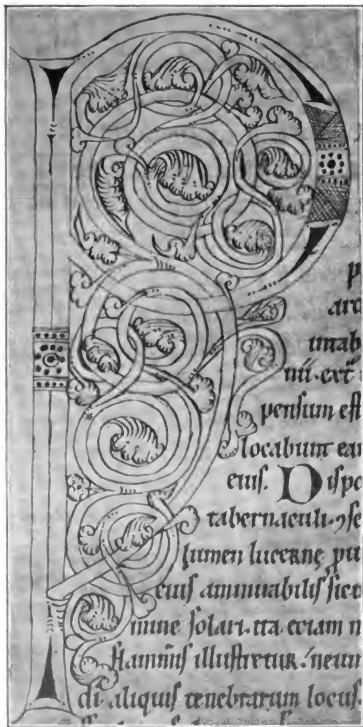 P
p
arc
intab
nii. ext
pensum est
locabunt ea
eius. Dispo
tabernaculi
lumen lucerne pu
eius ammirabilis sic
mine solari. ita etiam n
flammis illustretur. neun
di aliquis tenebrarum locus